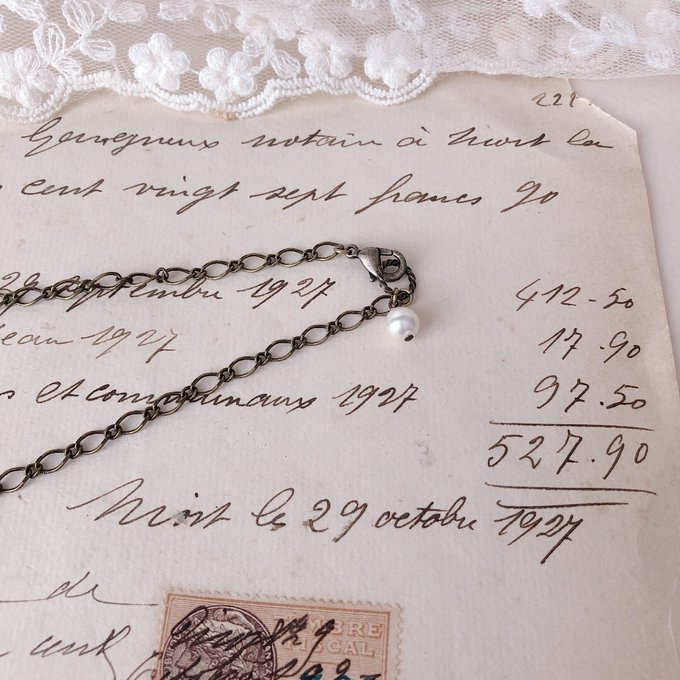 notaire à Niort la
cent vingt sept francs 90
29 septembre 1927 412-50
eau 1927 17.90
s et communaux 1927 97.50
527.90
Niort le 29 octobre 1927
de
TIMBRE
FISCAL